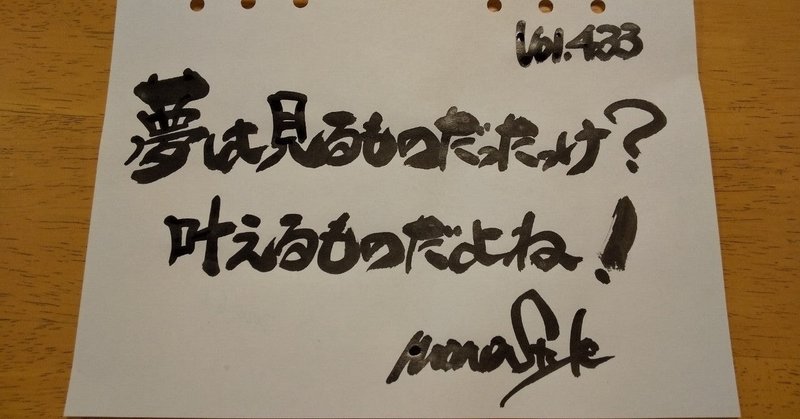 Vol.433
夢は見るものだったっけ?
叶えるものだよね!